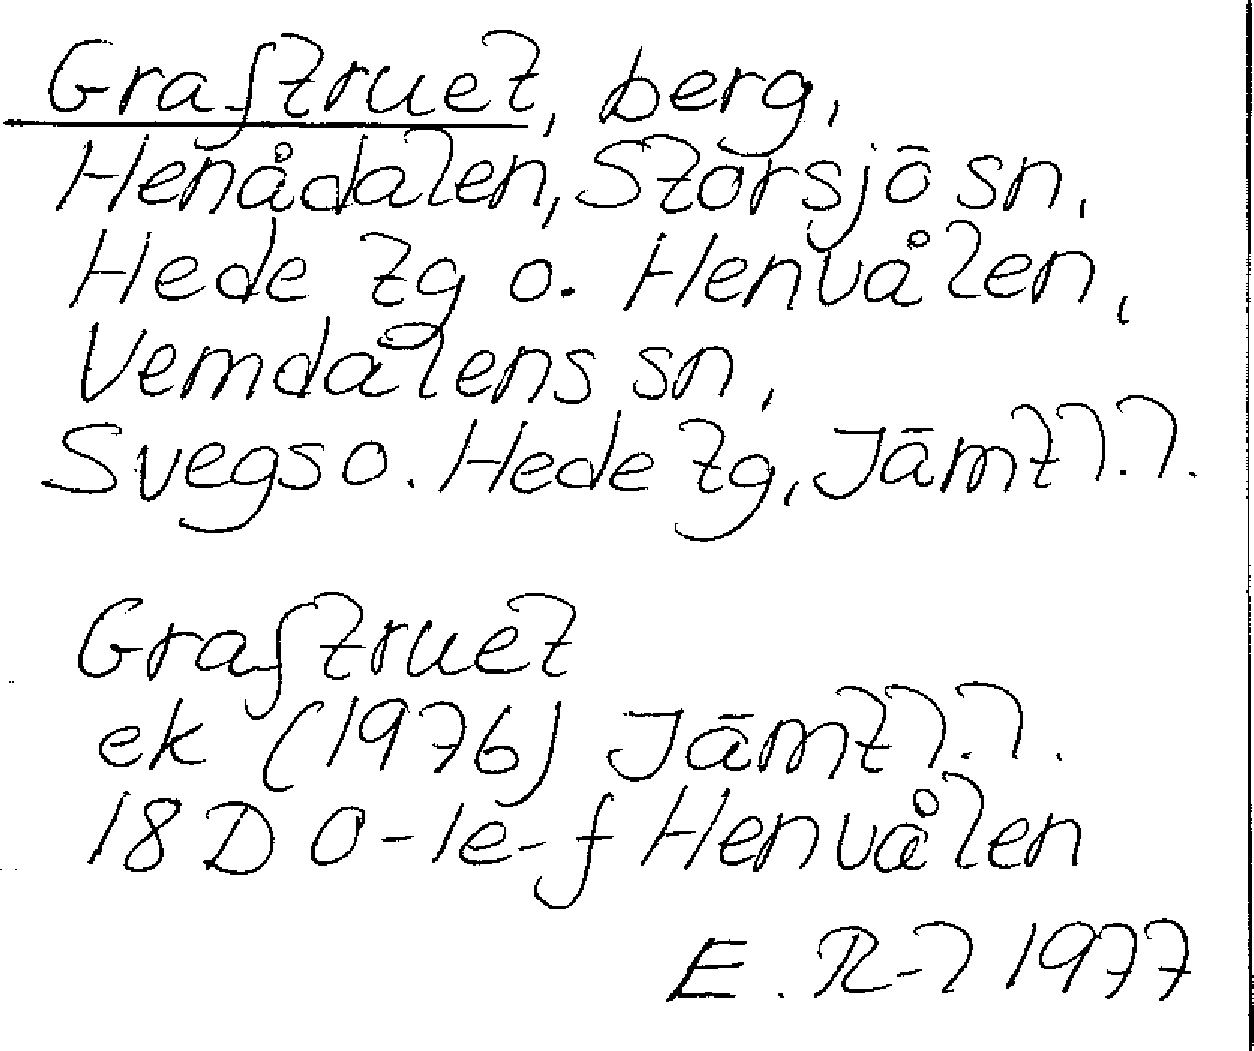 Graftruet, berg,
Henådalen, Storsjö sn,
Hede tg o. Henvålen,
Vemdalens sn,
Svegs o. Hede tg, Jämtl.l.
Graftruet
ek (1976) Jämtl.l.
18D 0-1e-f Henvålen
E. R-l 1977